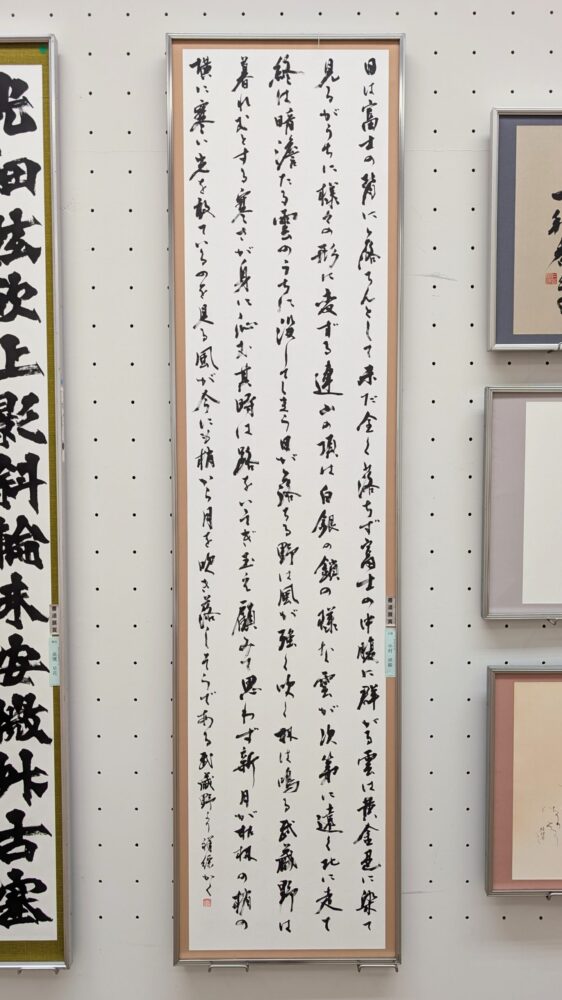 日は富士の背に落ちんとして未だ全く落ちず富士の中腹に群がる雲は黄金色に染て
見るがうちに様々の形に変ずる連山の頂は白銀の鎖の様な雲が次第に遠く北に走て
終は暗澹たる雲のうちに没してしまう日が落ちる野は風が強く吹く林は鳴る武蔵野は
暮れむとする寒さが身に沁む其時は路をいそぎ玉え顧みて思わず新月が枯林の梢の
横に寒い光を放ているのを見る風が今にも梢から月を吹き落しそうである武蔵野より かく
光細弦欲上影斜輪未安微升古塞